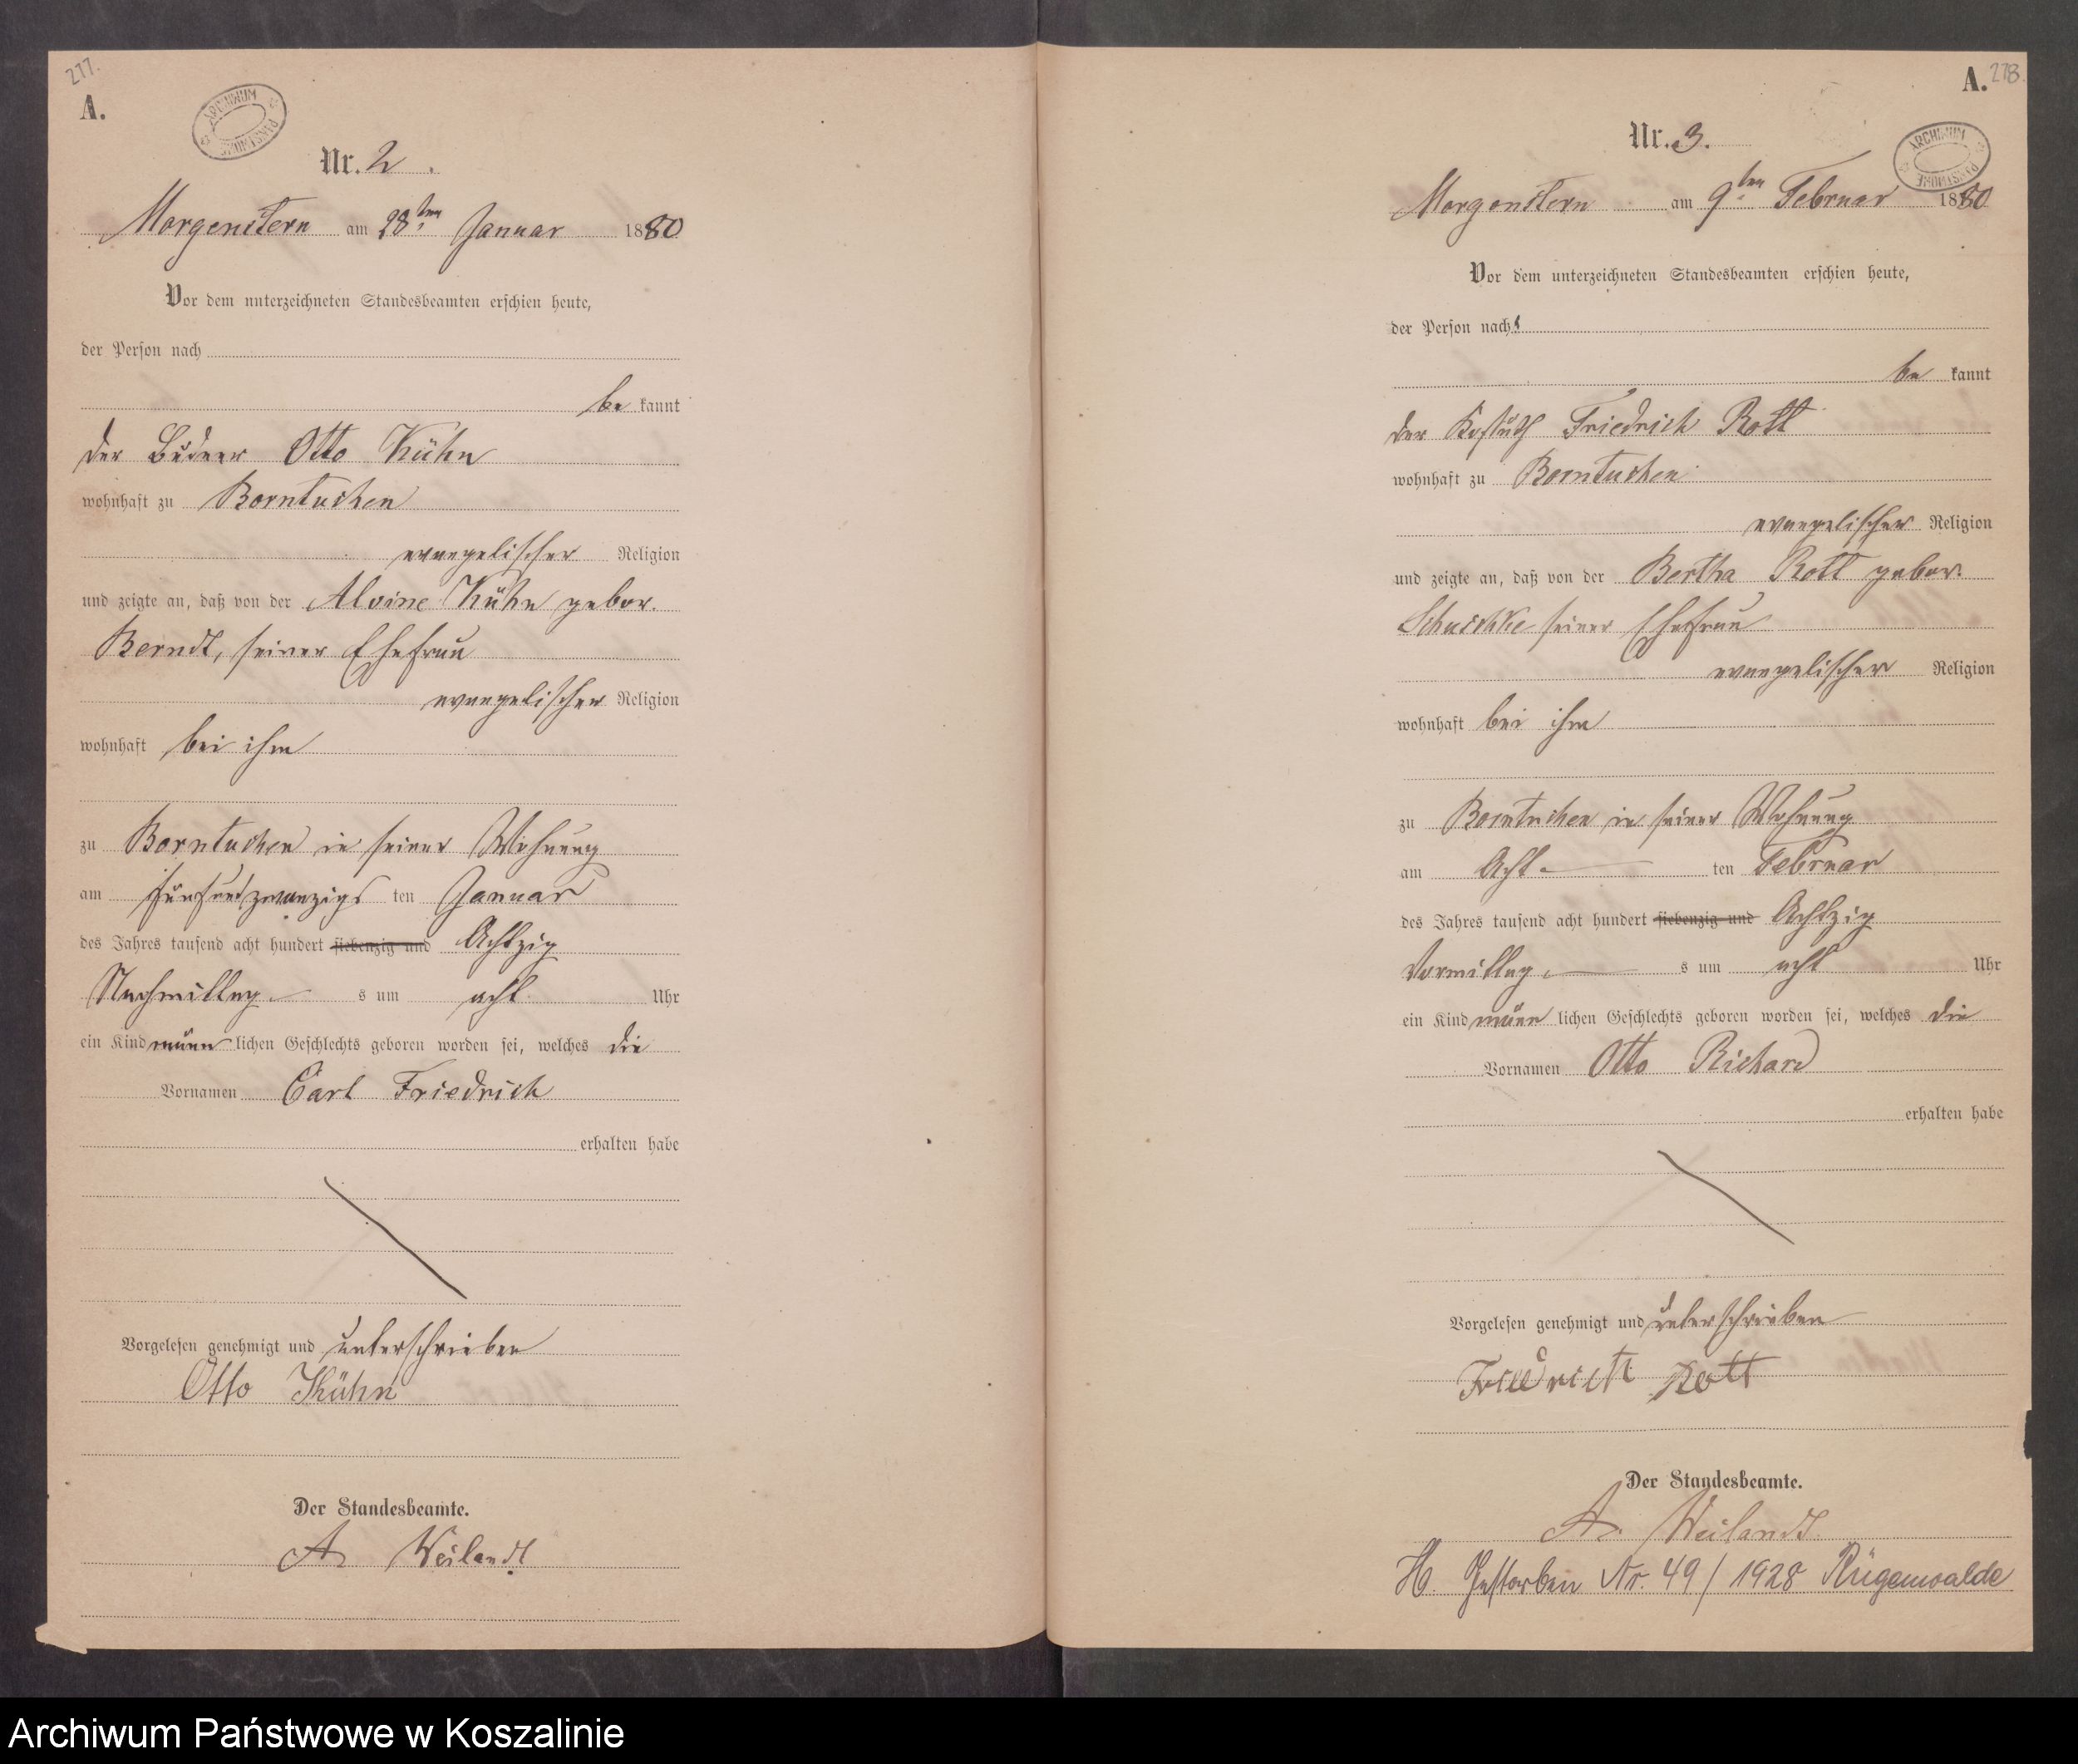 277.
A.
ARCHIWUM PAŃSTWOWE
Nr. 2.
Morgenstern am 28ten Januar 1880
Vor dem unterzeichneten Standesbeamten erschien heute,
der Person nach
be kannt
der Büdner Otto Kühn
wohnhaft zu Borntuchen
evangelischer Religion
und zeigte an, daß von der Alvine Kühn gebor.
Berndt, seiner Ehefrau
evangelischer Religion
wohnhaft bei ihm
zu Borntuchen in seiner Wohnung
am fünfundzwanzigs ten Januar
des Jahres tausend acht hundert siebenzig und Achtzig
Nachmittag s um acht Uhr
ein Kind männ lichen Geschlechts geboren worden sei, welches die
Vornamen Carl Friedrich
erhalten habe
Vorgelesen genehmigt und unterschrieben
Otto Kühn
Der Standesbeamte.
A. Weilandt
A. 278.
ARCHIWUM PAŃSTWOWE
Nr. 3.
Morgenstern am 9ten Februar 1880
Vor dem unterzeichneten Standesbeamten erschien heute,
der Person nach
be kannt
der Friedrich Rott
wohnhaft zu Borntuchen
evangelischer Religion
und zeigte an, daß von der Bertha Rott gebor.
Schuschke seiner Ehefrau
evangelischer Religion
wohnhaft bei ihm
zu Borntuchen in seiner Wohnung
am Acht ten Februar
des Jahres tausend acht hundert siebenzig und Achtzig
Vormittag s um acht Uhr
ein Kind männ lichen Geschlechts geboren worden sei, welches die
Vornamen Otto Richard
erhalten habe
Vorgelesen genehmigt und unterschrieben
Friedrich Rott
Der Standesbeamte.
A. Weilandt
H. Gestorben Nr. 49/1928 Rügenwalde
Archiwum Państwowe w Koszalinie